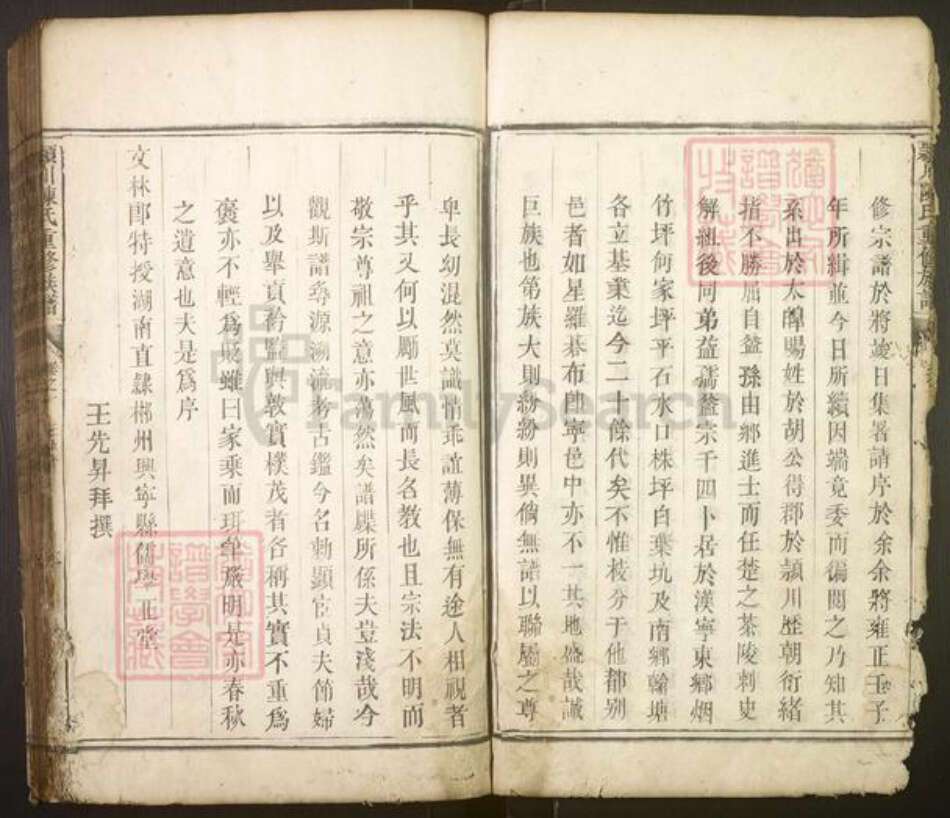 修宗譜於將竣日集畧請序於余余將雍正壬子
年所緝並今日所續因端竟委而徧閱之乃知其
系出於太皥賜姓於胡公得郡於潁川歷朝衍緒
指不勝屈自益孫由鄉進士而任楚之茶陵刺史
解組後同弟益孺益宗千四卜居於漢寧東鄉烟
竹坪何家坪平石水口株坪白葉坑及南鄉翰塘
各立基業迄今二十餘代矣不惟枝分于他都别
邑者如星羅碁布卽寧邑中亦不一其地盛哉誠
巨族也第族大則紛紛則異倘無譜以聯屬之尊
卑長幼混然莫識情乖誼薄保無有途人相視者
乎其又何以勵世風而長名教也且宗法不明而
敬宗尊祖之意亦蕩然矣譜牒所係夫豈淺哉今
觀斯譜尋源溯流考古鑑今名勅顯官貞夫節婦
以及舉貢衿監與敦實樸茂者各稱其實不重為
褒亦不輕為貶雖曰家乘而珥筆嚴明是亦春秋
之遺意也夫是為序
文林郎特授湖南直隸郴州興寧縣儒學正堂
王先昇拜撰
潁川陳氏重修族譜
FamilySearch